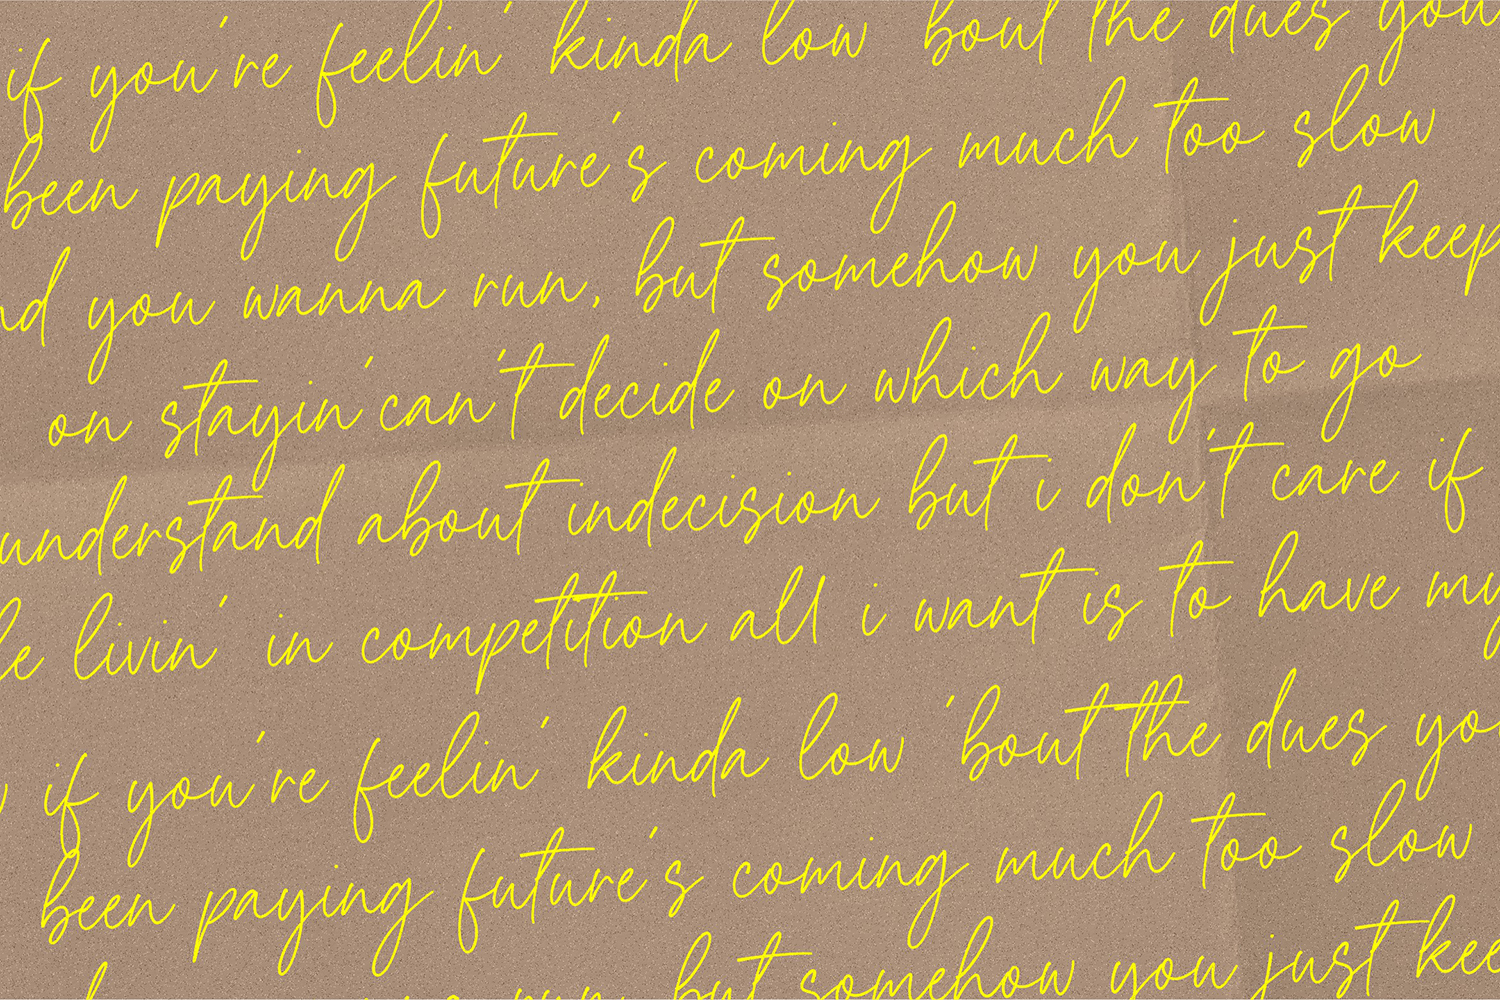 if you're feelin' kinda low bout the dues you
been paying future's coming much too slow
you wanna run, but somehow you just keep
on stayin' can't decide on which way to go
understand about indecision but i don't care if
livin' in competition all i want is to have my
if you're feelin' kinda low 'bout the dues
been paying future's coming much too slow
but somehow you just